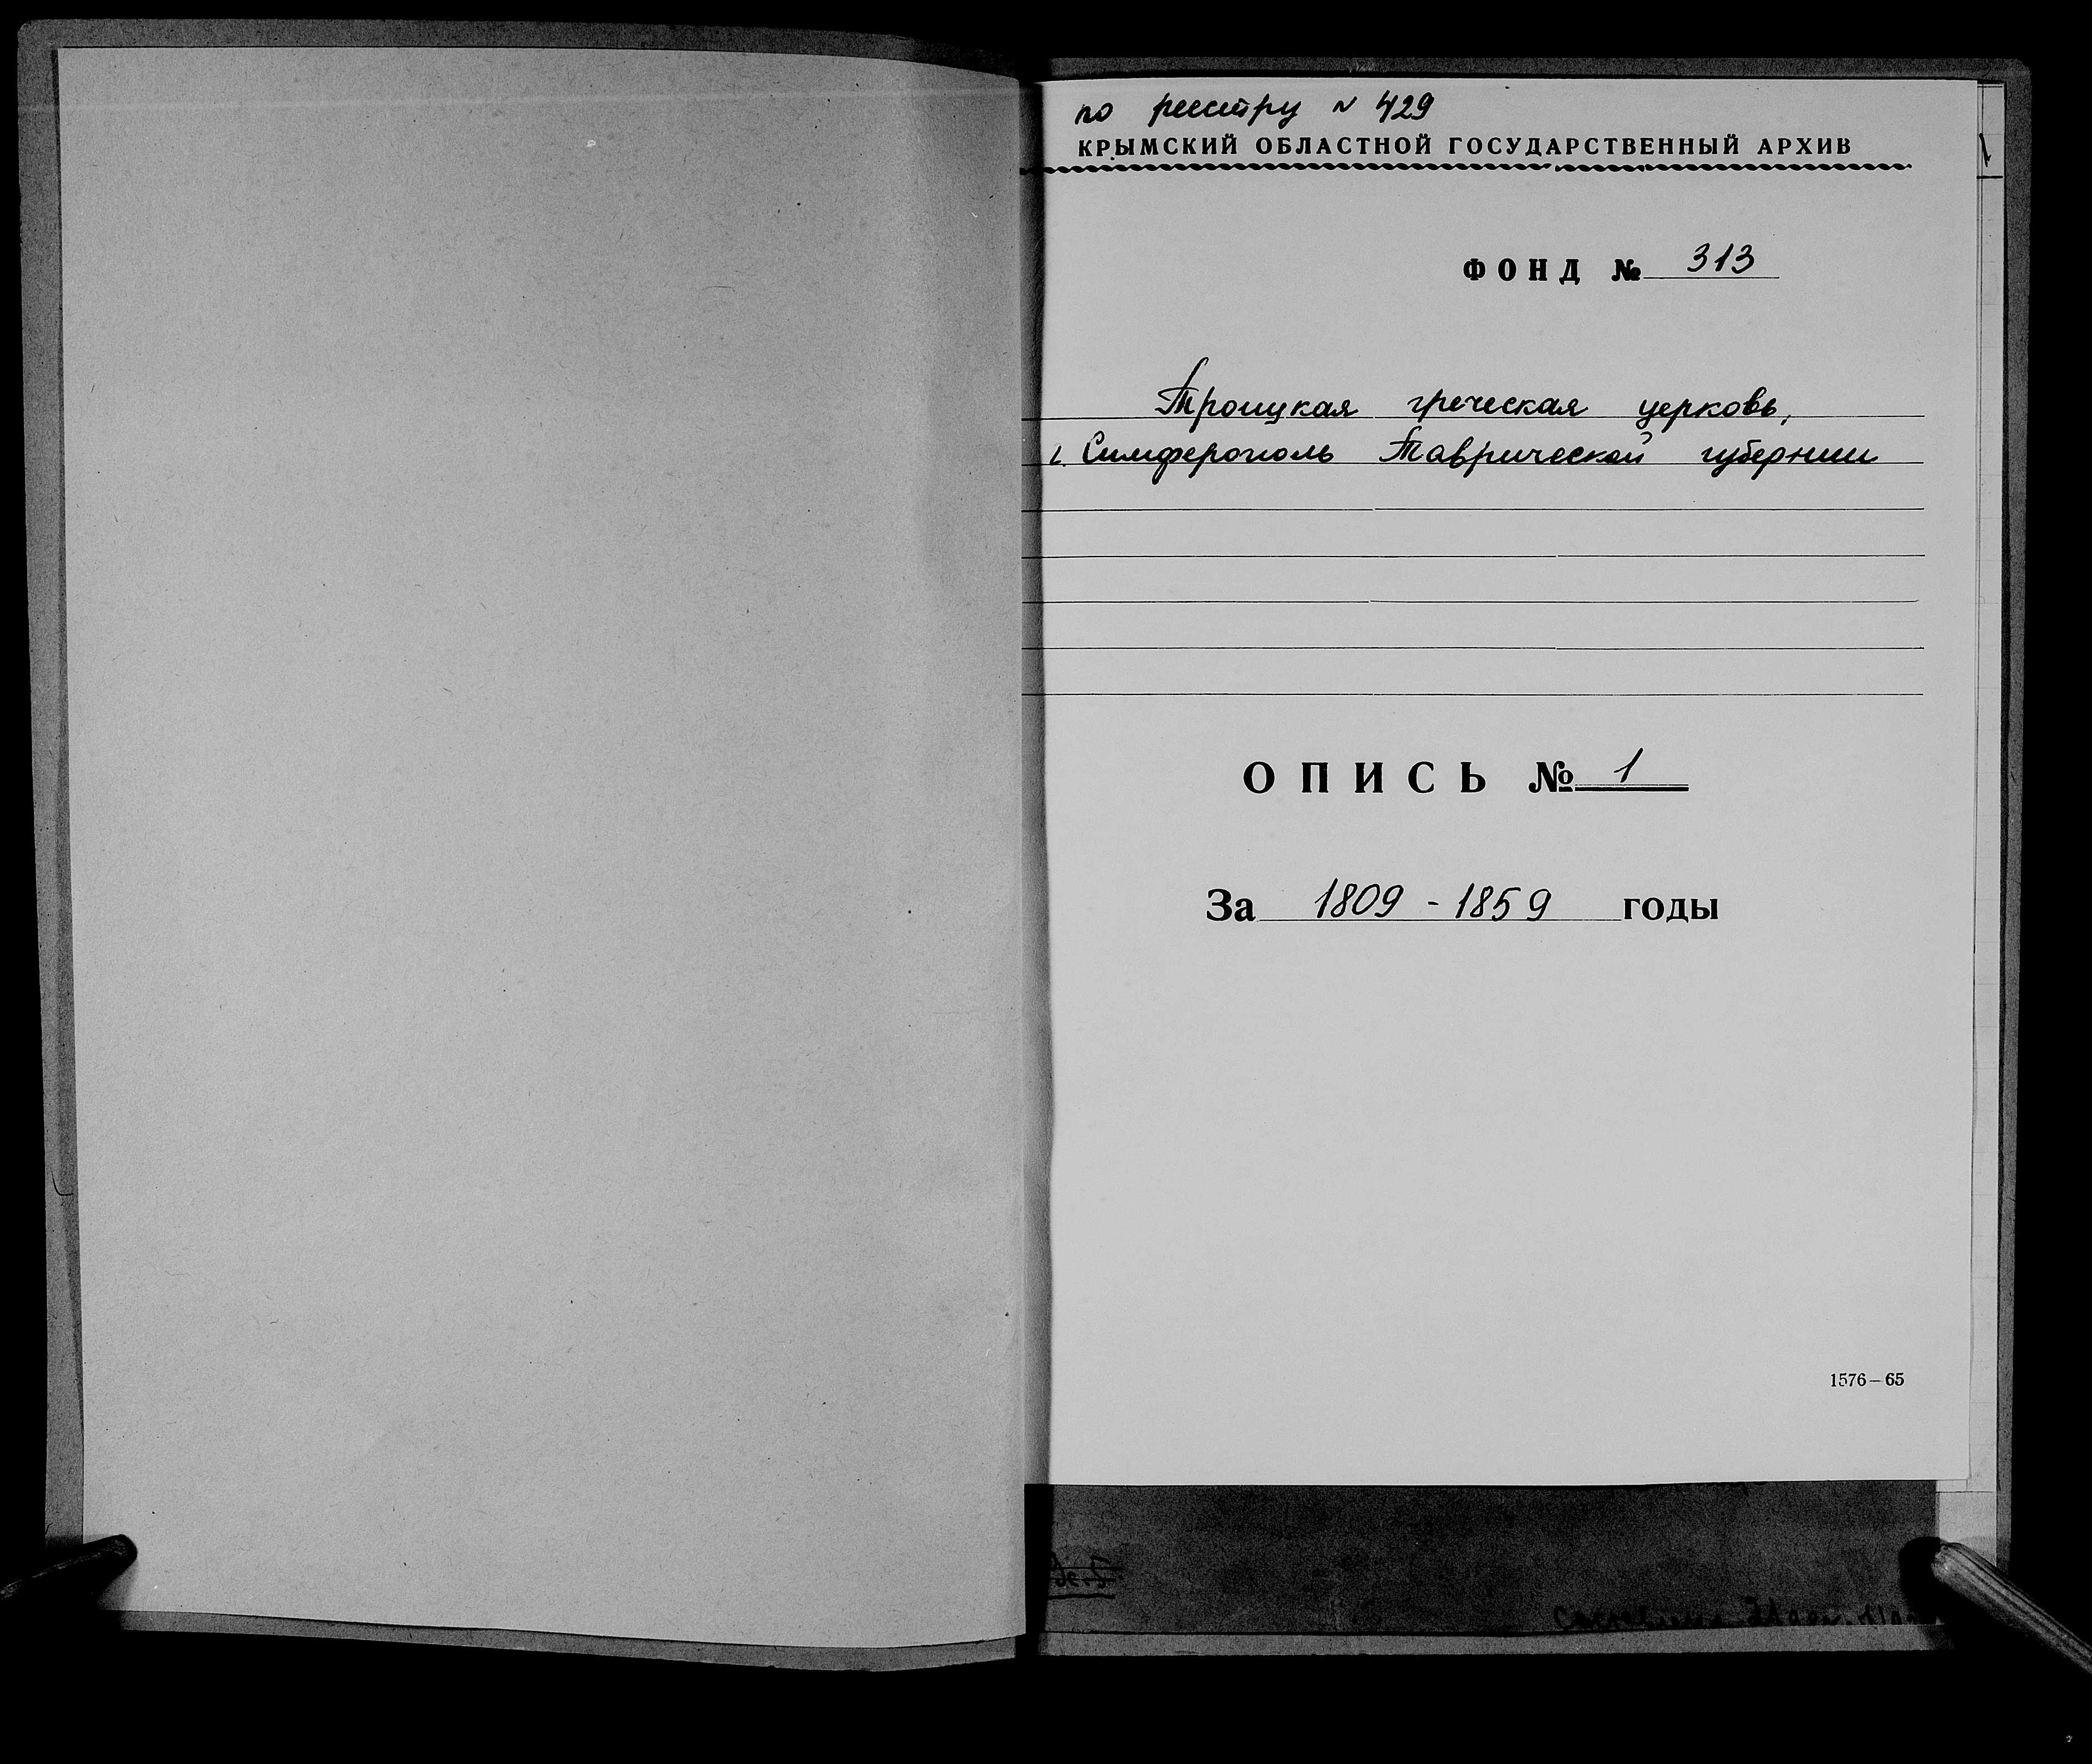 по реестру № 429
КРЫМСКИЙ ОБЛАСТНОЙ ГОСУДАРСТВЕННЫЙ АРХИВ
ФОНД № 313
Троицкая греческая церковь,
г. Симферополь Таврической губернии
ОПИСЬ № 1
За 1809 - 1859 годы
1576–65